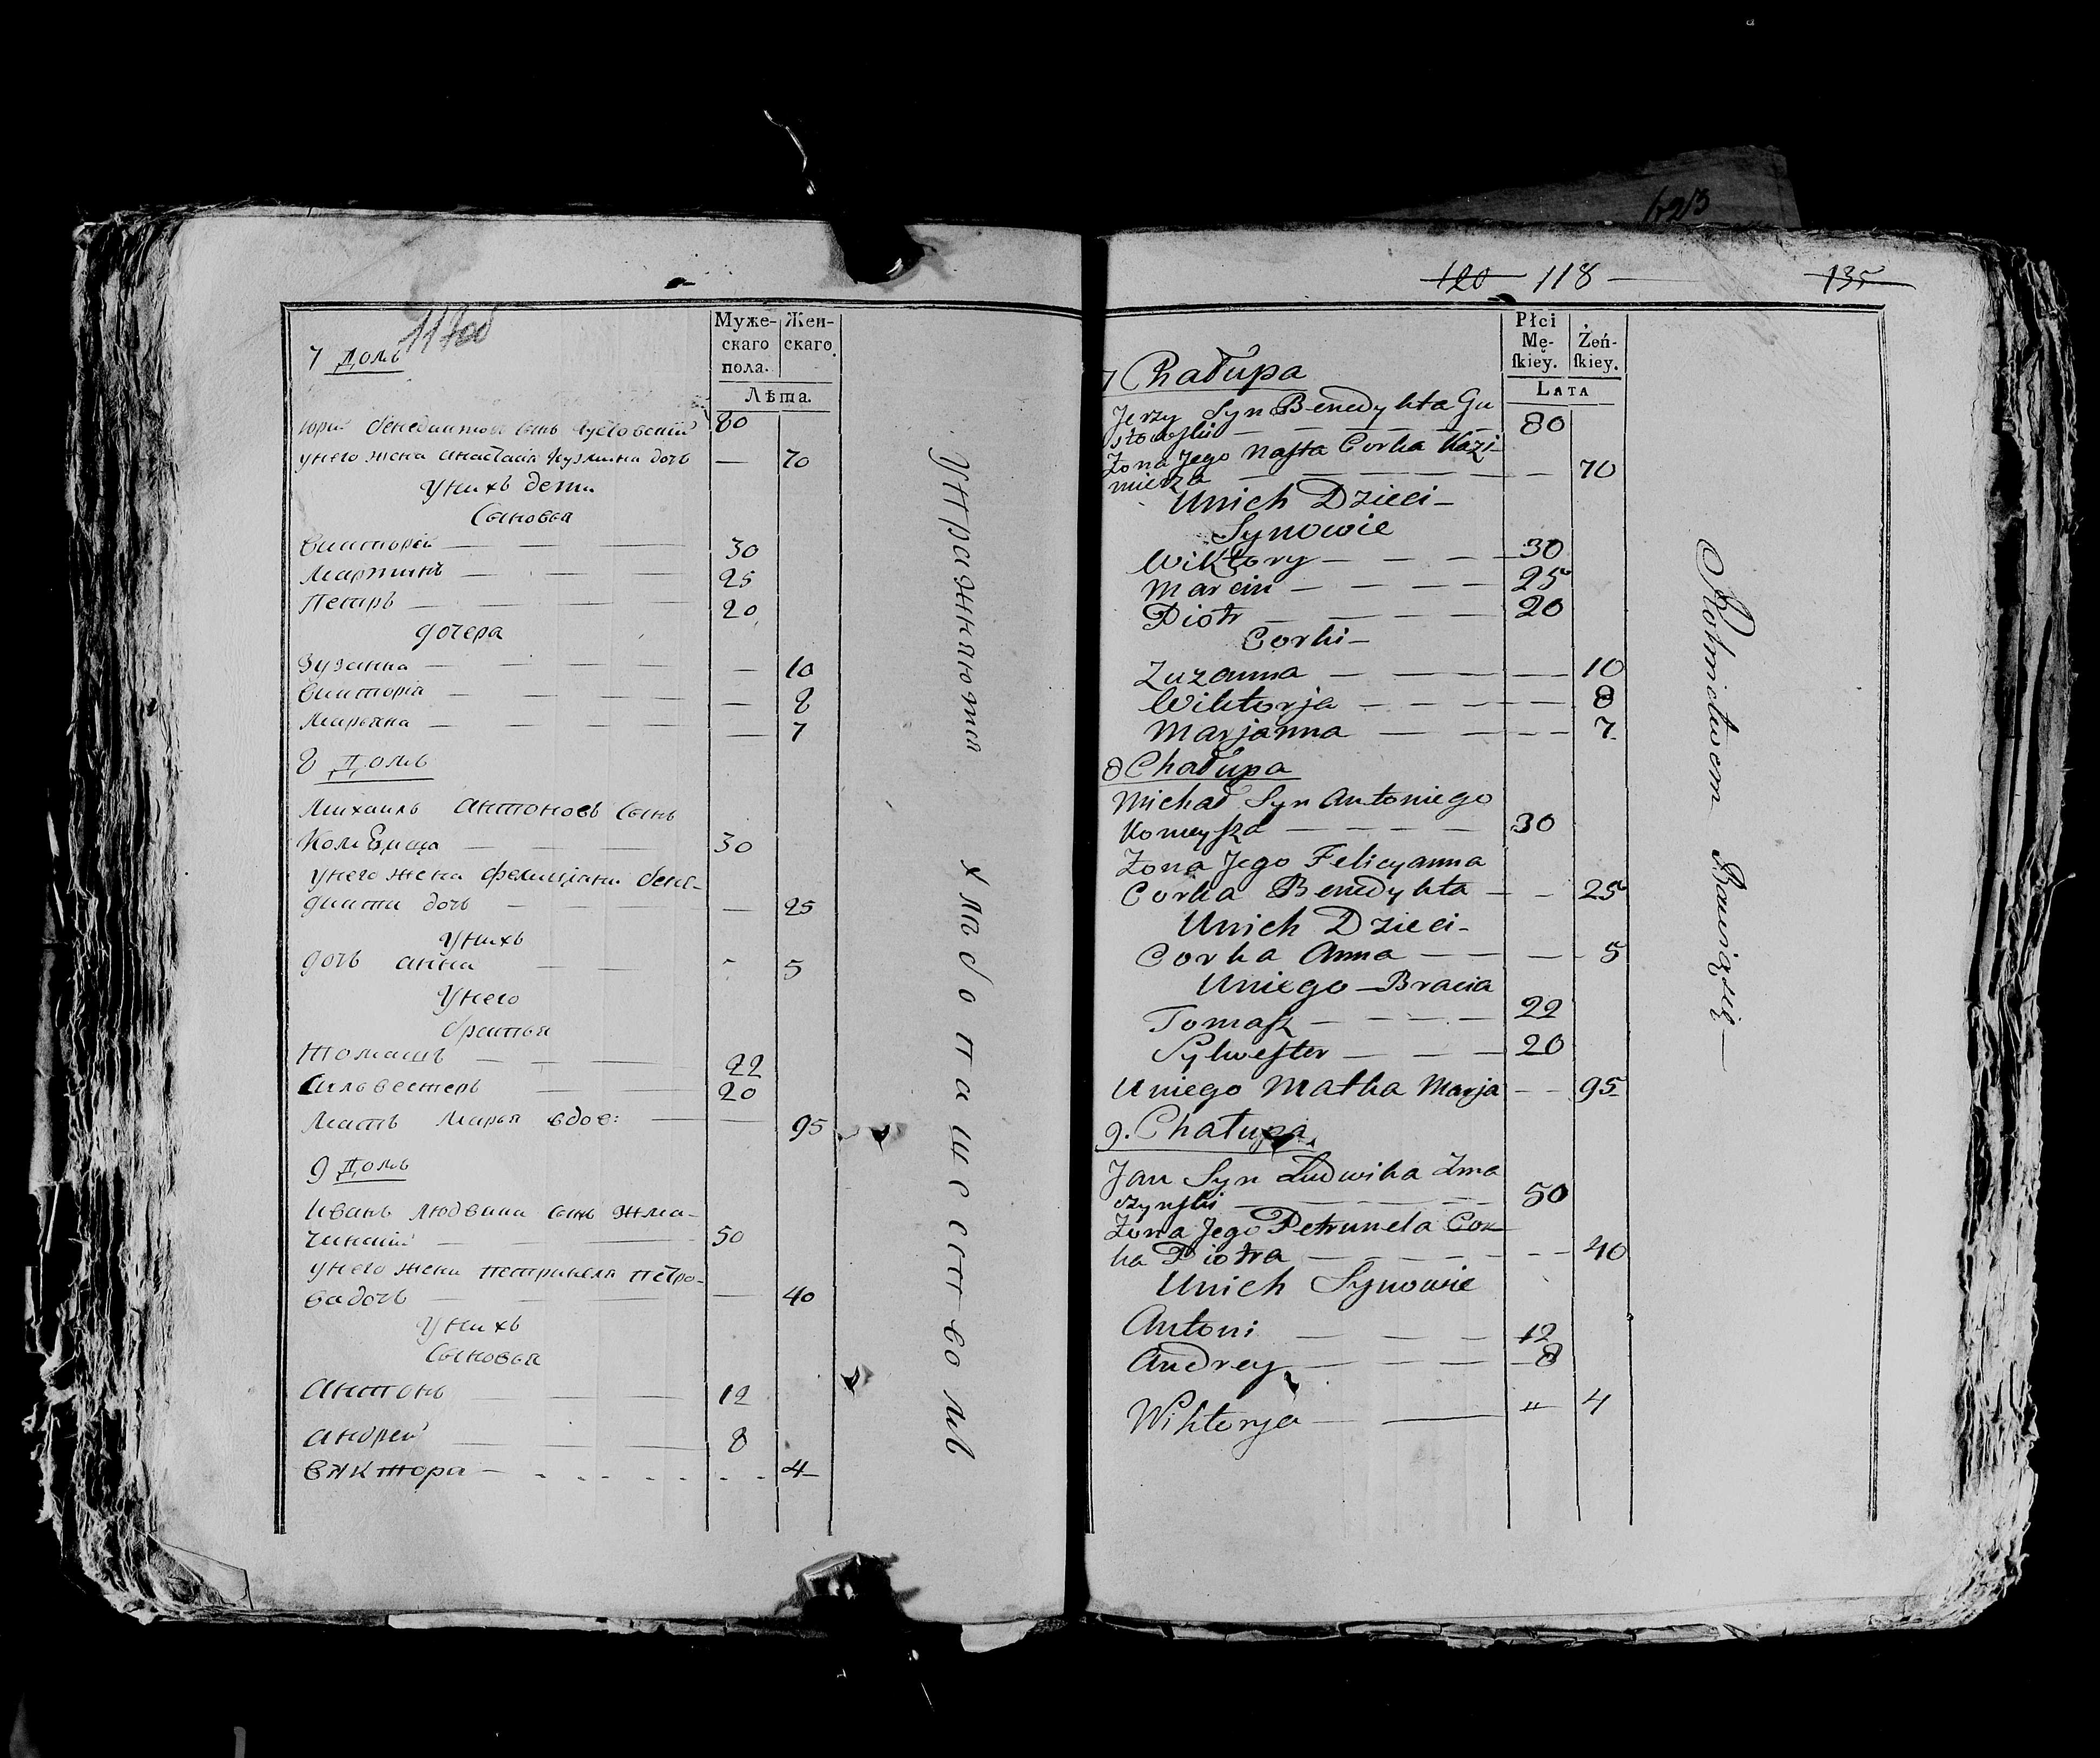 117об
Муже-
скаго
пола.
Жен-
скаго.
Лѣта.
7 Домъ
Юрий бенедиктовъ сынъ Густовский 80
унего жена анастасия кузмина дочь — 70
Унихъ дети
Сыновья
викторей — — — 30
мартинъ — — — 25
Петръ — — — 20
дочера
Зузанна — — — — 10
викторiя — — — — 8
марьяна — — — — 7
8 Домъ
Михаилъ антоновъ сынъ
— — — 30
унего жена фелицiана бене-
дикта дочь — — — 25
Унихъ
дочь анна — — - 5
Унего
братья
Томашъ — — — 22
Сильвестеръ — — 20
мать марья вдов: — — 95
9 Домъ
Иванъ людвика сынъ Жма-
чинский — — 50
унего жена петрунеля петро-
ва дочь — — — 40
Унихъ
Сыновья
Антонъ — — — 12
андрей — — — 8
виктора — - - - - 4
Упражняются хлебопашеством
120 118 — 135
Płci
Mę-
skiey.
Żeń-
skiey.
Lata
7 Chałupa
Jerzy Syn Benedykta Gu
stowski — — — 80
Żona Jego Nasta Corka Kazi-
mierza — — — 70
Unich Dzieci —
Synowie
Wiktory — — — 30
Marcin — — — 25
Piotr — — — 20
Corki —
Zuzanna — — — 10
Wiktorja — — — 8
Marjanna — — — 7
8 Chałupa
Michał Syn Antoniego
Komeysza — — — 30
Żona Jego Felicyanna
Corka Benedykta — — 25
Unich Dzieci -
Corka Anna — — — 5
Uniego — Bracia
Tomasz — — — 22
Sylwester — — — 20
Uniego Matka Marja — — 95
9. Chałupa
Jan Syn Ludwika Zma
czynski — — — 50
Żona Jego Petrunela Cor
ka Piotra — — — 40
Unich Synowie
Antoni — — — 12
Andrey — — — 8
Wiktorja — — " 4
Rolnictwem Bawią się —